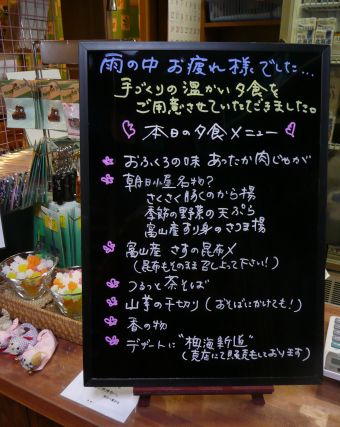 雨の中 お疲れ様でした…
手づくりの温かい夕食を
ご用意させていただきました。
本日の夕食メニュー
おふくろの味 あったか肉じゃが
朝日小屋名物?
さくさく豚くのから揚
季節の野菜の天ぷら
富山産すり身のさつま揚
富山産 さすの昆布〆
(昆布もそのまま召し上って下さい!)
つるっと茶そば
山芋の千切り(おそばにかけても!)
香の物
デザートに"栂海新道"
(売店にて販売もしております)